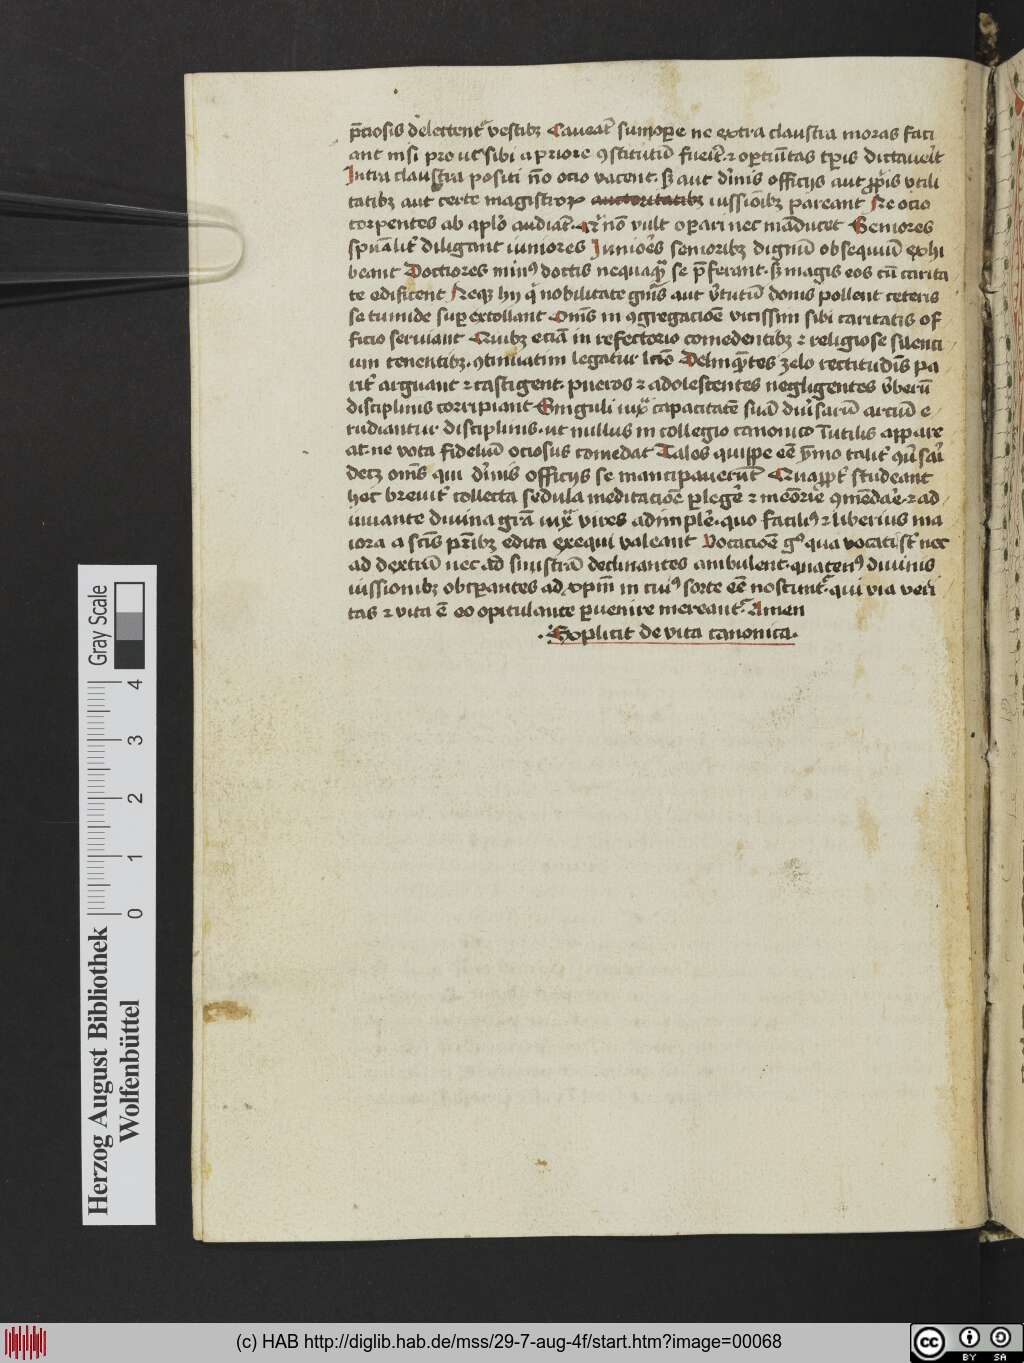 p̄ciosis delectent᷑ vestibꝫ Caveāt sumope ne extra claustra moras faci
ant nisi prout sibi a priore ꝯstitutū fuerit ⁊ oportūitas tp̄is dictaverit
Intra claustra positi nō ocio vacent. sꝫ aut divinis officijs aut ꝓprijs vtili
tatibꝫ aut certe magistroꝝ auctoritatibꝫ iussionibꝫ pareant Ne ocio
torpentes ab aplo audiāt. Qui nō vult opari nec māducet Seniores
spūalit᷑ diligant iuniores Iuniores senioribꝫ dignū obsequiū exhi
beant Doctiores minꝰ doctis nequaquā se p̄ferant. sꝫ magis eos cū carita
te edificent Neqꝫ hij q̄ nobilitate gen̄is aut v̓tutū donis pollent ceteris
se tumide suꝑ extollant Om̄s in ꝯgregacioē vicissim sibi caritatis of
ficio serviant Quibꝫ eciā in refectorio comedentibꝫ ⁊ religiose silenci
um tenentibꝫ. ꝯtinuatim legatur lcīo Delinquētes zelo rectitudīs pa
rit᷑ arguant ⁊ castigent. pueros ⁊ adolescentes negligentes v̓berū
disciplinis corripiant Singuli iuxᵃ capacitatē suā div̓sarū arciū e
rudiantur disciplinis. ut nullus in collegio canonico īutilis appare
at. ne vota fideliū ociosus comedat Tales quippe eē
decꝫ om̄s qui divinis officijs se mancipaverūt Quaꝓpt᷑ studeant
hec brevit᷑ collecta sedula meditacioē ꝑleg̓e ⁊ memorie ꝯmēdare. ⁊ ad
iuvante divina grā iuxᵃ vires adimplere. quo faciliꝰ ⁊ liberius ma
iora a scīs pr̄ibꝫ edita exequi valeant Vocacioē gͦ qua vocati sūt nec
ad dextrā nec ad sinistrā declinantes ambulent. quatenꝰ divinis
iussionibꝫ obtꝑantes ad xpm̄ in cuiꝰ sorte eē noscunt᷑. qui via veri
tas ⁊ vita ē eo opitulante ꝑvenire mereant᷑. Amen
.Explicit de vita canonica.
Herzog August Bibliothek
Wolfenbüttel
0 1 2 3 4 Gray Scale
(c) HAB http://diglib.hab.de/mss/29-7-aug-4f/start.htm?image=00068
cc BY SA